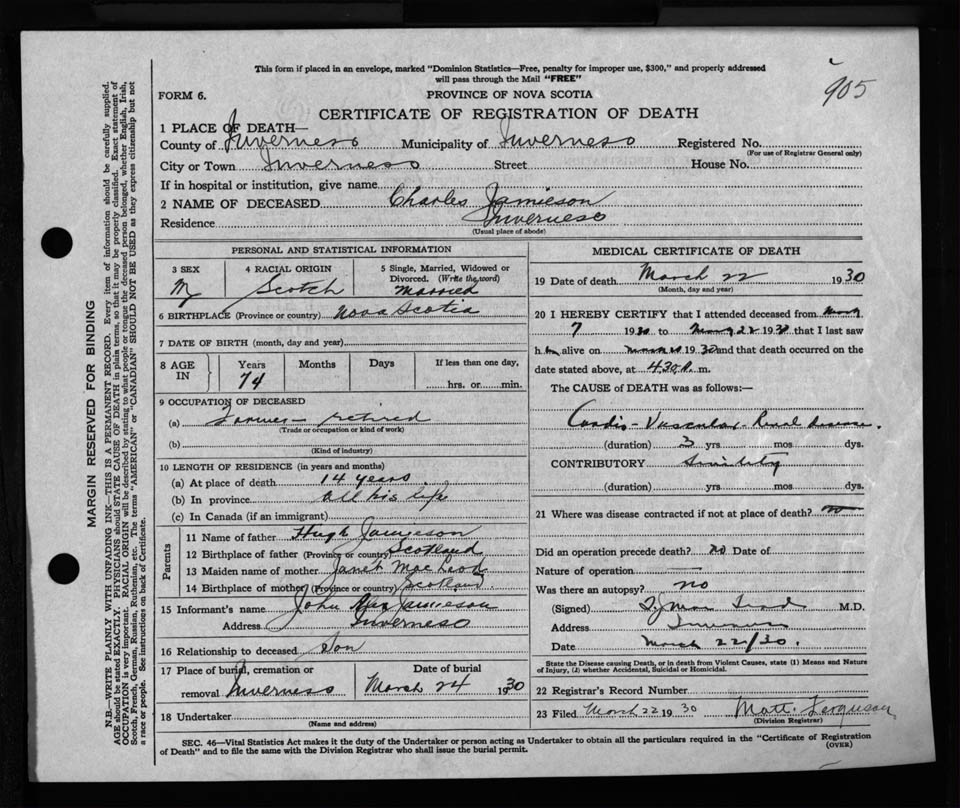 This form if placed in an envelope, marked "Dominion Statistics—Free, penalty for improper use, $300," and properly addressed
will pass through the Mail "FREE"
905
FORM 6.
PROVINCE OF NOVA SCOTIA
CERTIFICATE OF REGISTRATION OF DEATH
1 PLACE OF DEATH—
County of Inverness Municipality of Inverness Registered No.
(For use of Registrar General only)
City or Town Inverness Street House No.
If in hospital or institution, give name
2 NAME OF DECEASED Charles Jamieson
Residence Inverness
(Usual place of abode)
PERSONAL AND STATISTICAL INFORMATION
3 SEX 4 RACIAL ORIGIN 5 Single, Married, Widowed or
Divorced. (Write the word)
M Scotch Married
6 BIRTHPLACE (Province or country) Nova Scotia
7 DATE OF BIRTH (month, day and year)
8 AGE IN Years Months Days If less than one day,
74 hrs. or min.
9 OCCUPATION OF DECEASED
(a) Farmer - retired
(Trade or occupation or kind of work)
(b)
(Kind of industry)
10 LENGTH OF RESIDENCE (in years and months)
(a) At place of death 14 years
(b) In province all his life
(c) In Canada (if an immigrant)
Parents
11 Name of father Hugh Jamieson
12 Birthplace of father (Province or country) Scotland
13 Maiden name of mother Janet MacLeod
14 Birthplace of mother (Province or country) Scotland
15 Informant's name John Jamieson
Address Inverness
16 Relationship to deceased Son
17 Place of burial, cremation or Date of burial
removal Inverness March 24 1930
18 Undertaker
(Name and address)
MEDICAL CERTIFICATE OF DEATH
19 Date of death March 22 1930
(Month, day and year)
20 I HEREBY CERTIFY that I attended deceased from March
7 1930 to March 22 1930 that I last saw
him alive on 1930 and that death occurred on
date stated above, at 4.30 m.
The CAUSE OF DEATH was as follows:—
Cardio-Vascular Renal disease.
(duration) 3 yrs. mos. dys.
CONTRIBUTORY Senility
(duration) yrs. mos. dys.
21 Where was disease contracted if not at place of death?
Did an operation precede death? no Date of
Nature of operation —
Was there an autopsy? no
(Signed) M.D.
Address Inverness
Date March 22/30.
State the Disease causing Death, or in death from Violent Causes, state (1) Means and Nature
of Injury, (2) whether Accidental, Suicidal or Homicidal.
22 Registrar's Record Number
23 Filed March 22 1930 Matt. Ferguson
(Division Registrar)
SEC. 46—Vital Statistics Act makes it the duty of the Undertaker or person acting as Undertaker to obtain all the particulars required in the "Certificate of Registration
of Death" and to file the same with the Division Registrar who shall issue the burial permit.
(OVER)
MARGIN RESERVED FOR BINDING
N.B.—WRITE PLAINLY WITH UNFADING INK—THIS IS A PERMANENT RECORD. Every item of information should be carefully supplied.
AGE should be stated EXACTLY. PHYSICIANS should STATE CAUSE OF DEATH in plain terms, so that it may be properly classified. Exact statement of
OCCUPATION is very important. RACIAL ORIGIN will be described by stating to what people or tongue the deceased person belonged, whether English, Irish,
Scotch, French, German, Russian, Ruthenian, etc. The terms "AMERICAN" or "CANADIAN" SHOULD NOT BE USED as they express citizenship but not
a race or people. See instructions on back of Certificate.